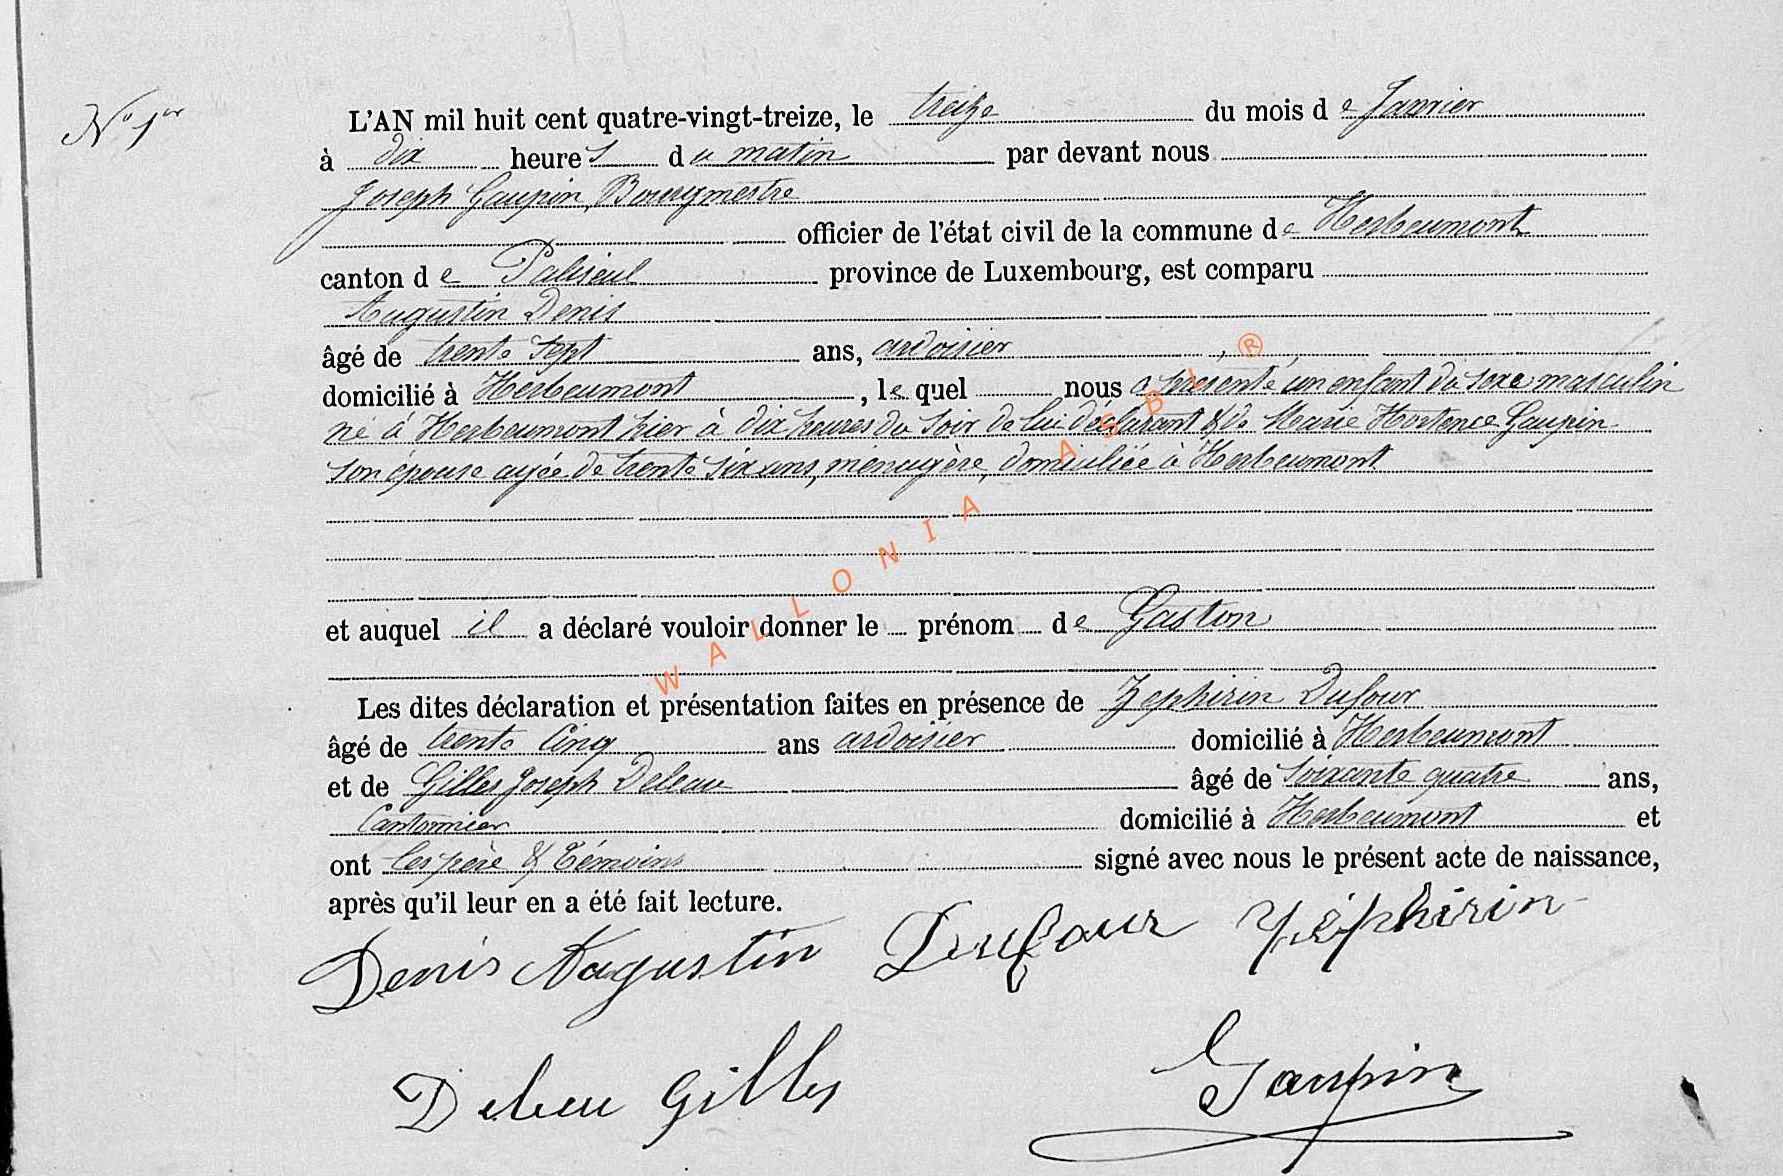 N° 1er
L'AN mil huit cent quatre-vingt-treize, le treize du mois de Janvier
à dix heures du matin par devant nous
Joseph Gaupin, Bourgmestre
officier de l'état civil de la commune de Herbeumont
canton de Paliseul province de Luxembourg, est comparu
Augustin Denis
âgé de trente sept ans, ardoisier
domicilié à Herbeumont, lequel nous a présenté un enfant du sexe masculin
né à Herbeumont hier à dix heures du soir de lui déclarant & de Marie Hortence Gaupin
son épouse agée de trente six ans, ménagère, domiciliée à Herbeumont
et auquel il a déclaré vouloir donner le prénom de Gaston
Les dites déclaration et présentation faites en présence de Zephirin Dufour
âgé de trente cinq ans ardoisier domicilié à Herbeumont
et de Gilles Joseph Deleau âgé de soixante quatre ans,
Cantonnier domicilié à Herbeumont et
ont les père & témoins signé avec nous le présent acte de naissance,
après qu'il leur en a été fait lecture.
Denis Augustin Dufour Zéphirin
Deleau Gilles Gaupin
WALLONIA ASBL ®